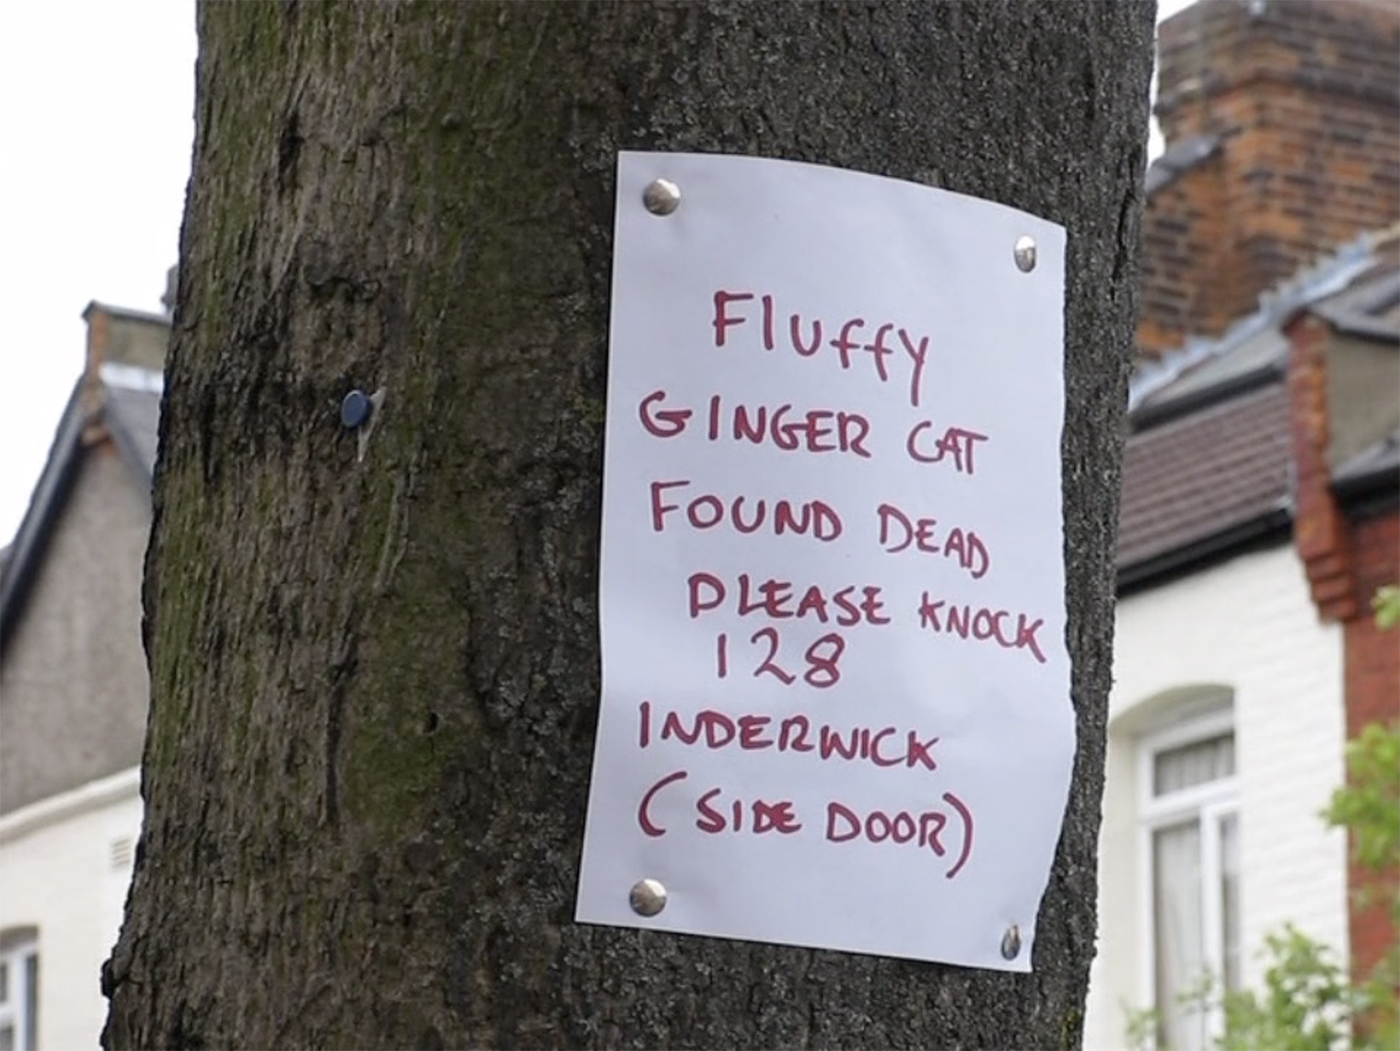 Fluffy
GINGER CAT
FOUND DEAD
PLEASE KNOCK
128
INDERWICK
(SIDE DOOR)